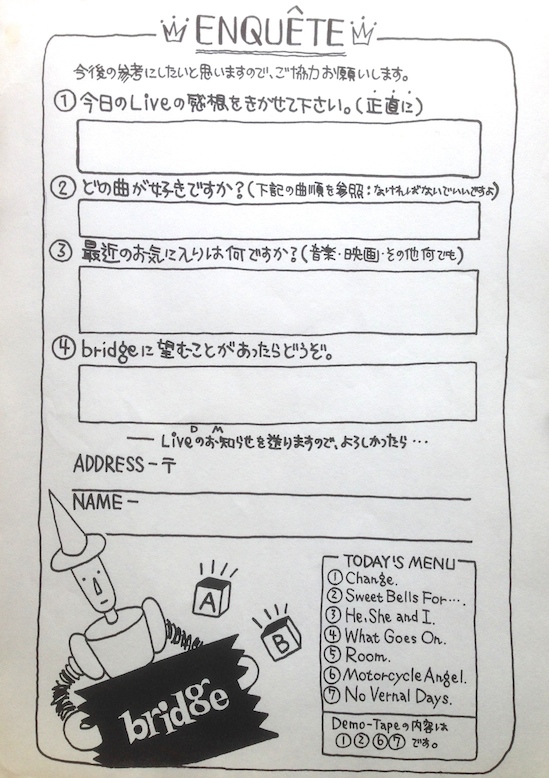 ENQUÊTE
今後の参考にしたいと思いますので、ご協力お願いします。
①今日のLiveの感想をきかせて下さい。(正直に)
②どの曲が好きですか?(下記の曲順を参照:なければないでいいですよ)
③最近のお気に入りは何ですか?(音楽・映画・その他何でも)
④bridgeに望むことがあったらどうぞ。
DM
―Liveのお知らせを送りますので、よろしかったら…
ADDRESS-〒
NAME-
TODAY'S MENU
①Change.
②Sweet Bells For….
③He, She and I.
④What Goes On.
⑤Room.
⑥Motorcycle Angel.
⑦No Vernal Days.
Demo-Tapeの内容は
①②⑥⑦です。
A
B
bridge